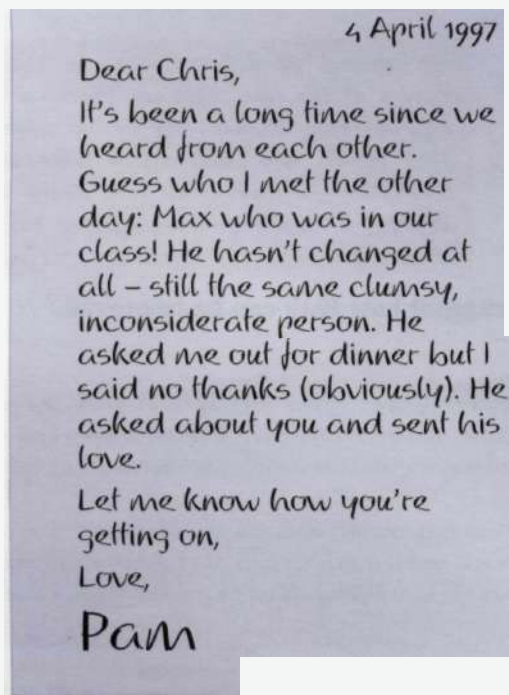 4 April 1997
Dear Chris,
It's been a long time since we
heard from each other.
Guess who I met the other
day: Max who was in our
class! He hasn't changed at
all – still the same clumsy,
inconsiderate person. He
asked me out for dinner but I
said no thanks (obviously). He
asked about you and sent his
love.
Let me know how you're
getting on,
Love,
Pam